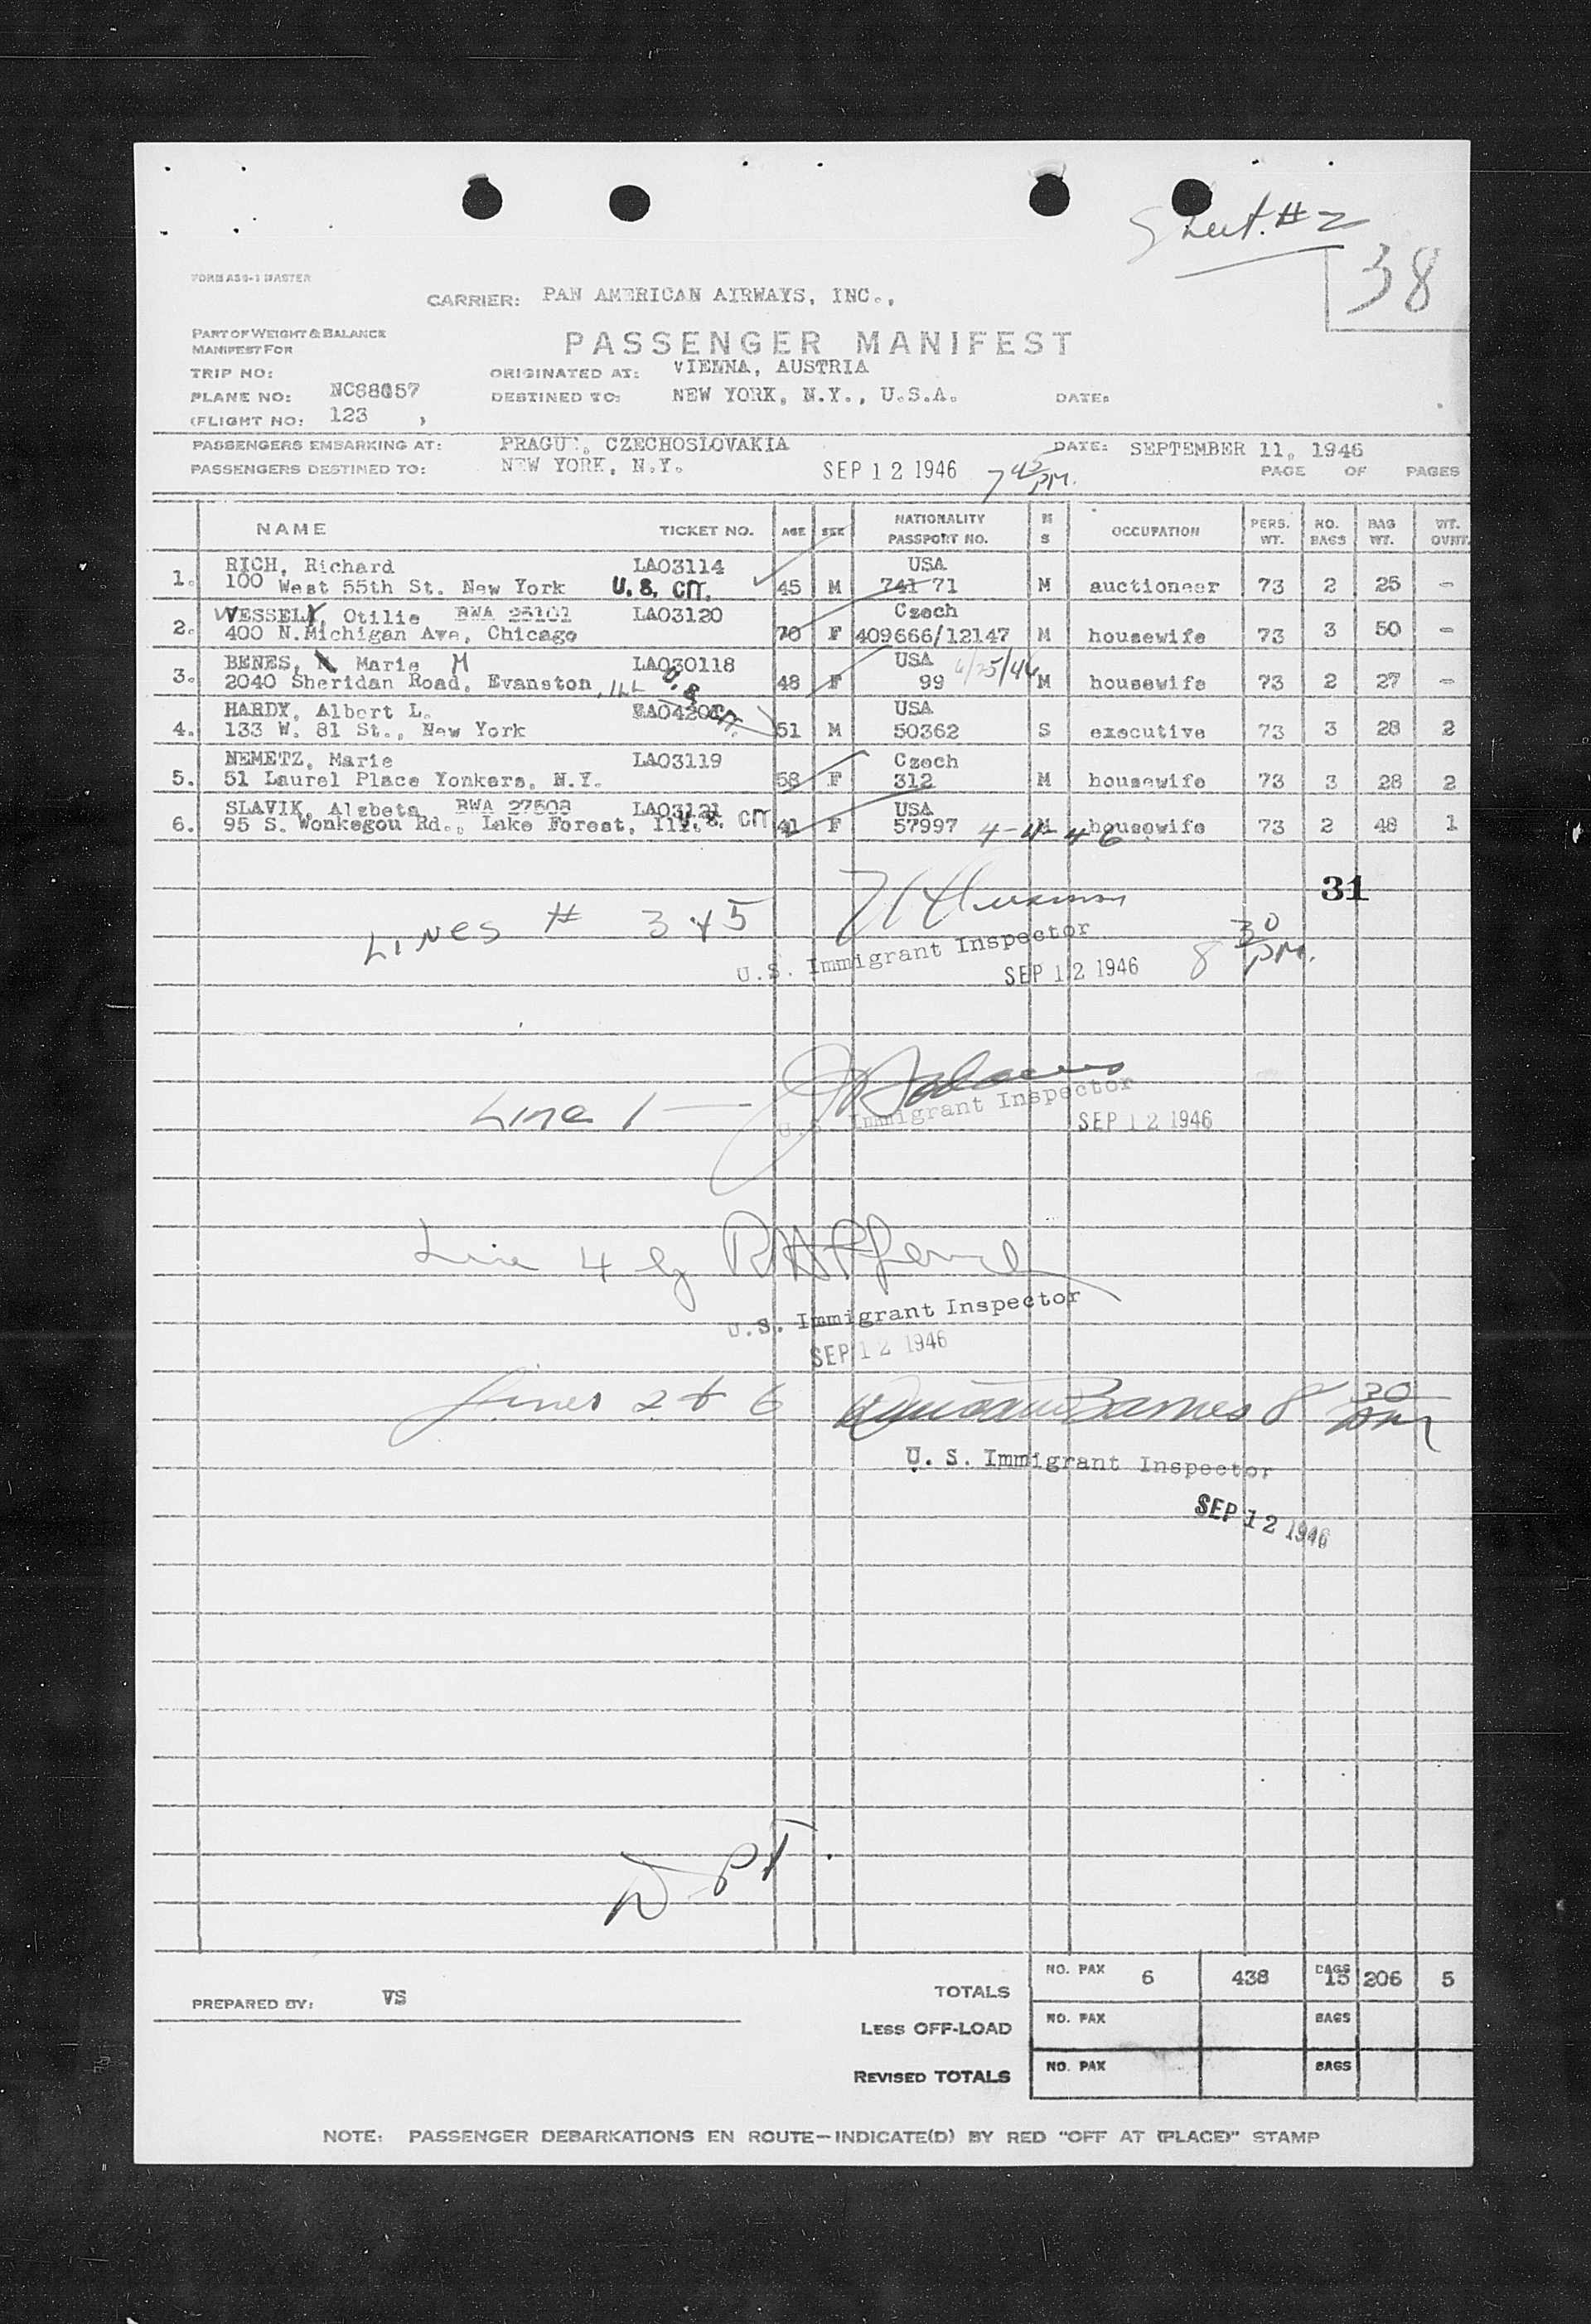 Sheet #2
38
FORM AS9-1 MASTER
CARRIER: PAN AMERICAN AIRWAYS, INC.,
PART OF WEIGHT & BALANCE
MANIFEST FOR
PASSENGER MANIFEST
TRIP NO: ORIGINATED AT: VIENNA, AUSTRIA
PLANE NO: NC88857 DESTINED TO: NEW YORK, N.Y., U.S.A. DATE:
(FLIGHT NO: 123 )
PASSENGERS EMBARKING AT: PRAGUE, CZECHOSLOVAKIA DATE: SEPTEMBER 11, 1946
PASSENGERS DESTINED TO: NEW YORK, N.Y. SEP 12 1946 7 45 PM. PAGE OF PAGES
NAME TICKET NO. AGE SEX NATIONALITY PASSPORT NO. M S OCCUPATION PERS. WT. NO. BAGS BAG WT. WT. OVWT.
RICH, Richard LA03114 USA
1. 100 West 55th St. New York U.S. CIT. 45 M 741 71 M auctioneer 73 2 25 -
WESSELY, Otilie BWA 25101 LA03120 Czech
2. 400 N.Michigan Ave, Chicago 70 F 409666/12147 M housewife 73 3 50 -
BENES, Marie M LA030118 USA 6/25/46
3. 2040 Sheridan Road, Evanston, ILL U.S. CIT. 48 F 99 M housewife 73 2 27 -
HARDY, Albert L. USA
4. 133 W. 81 St., New York 51 M 50362 S executive 73 3 28 2
NEMETZ, Marie LA03119 Czech
5. 51 Laurel Place Yonkers, N.Y. 58 F 312 M housewife 73 3 28 2
SLAVIK, Alzbeta BWA 27508 LA03121 USA
6. 95 S. Wonkegou Rd., Lake Forest, Ill. U.S. CIT 41 F 57997 4-4-46 M housewife 73 2 48 1
31
LINES # 3 & 5
U.S. Immigrant Inspector
SEP 12 1946 8 30 PM.
Line 1 —
U.S. Immigrant Inspector
SEP 12 1946
Line 4 by
U.S. Immigrant Inspector
SEP 12 1946
Lines 2 & 6 Barnes 8 30 PM
U. S. Immigrant Inspector
SEP 12 1946
TOTALS NO. PAX 6 438 BAGS 15 206 5
PREPARED BY: VS
LESS OFF-LOAD NO. PAX BAGS
REVISED TOTALS NO. PAX BAGS
NOTE: PASSENGER DEBARKATIONS EN ROUTE—INDICATE(D) BY RED "OFF AT (PLACE)" STAMP